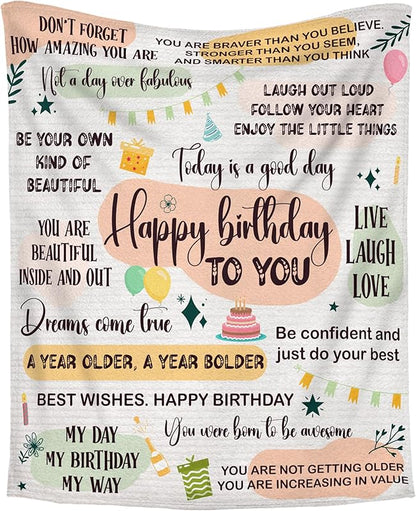 DON'T FORGET
HOW AMAZING YOU ARE
YOU ARE BRAVER THAN YOU BELIEVE.
STRONGER THAN YOU SEEM,
AND SMARTER THAN YOU THINK
Not a day over fabulous
LAUGH OUT LOUD
FOLLOW YOUR HEART
ENJOY THE LITTLE THINGS
BE YOUR OWN
KIND OF
BEAUTIFUL
Today is a good day
Happy birthday
TO YOU
YOU ARE
BEAUTIFUL
INSIDE AND OUT
LIVE
LAUGH
LOVE
Dreams come true
Be confident and
just do your best
A YEAR OLDER, A YEAR BOLDER
BEST WISHES. HAPPY BIRTHDAY
MY DAY
MY BIRTHDAY
MY WAY
You were born to be awesome
YOU ARE NOT GETTING OLDER
YOU ARE INCREASING IN VALUE